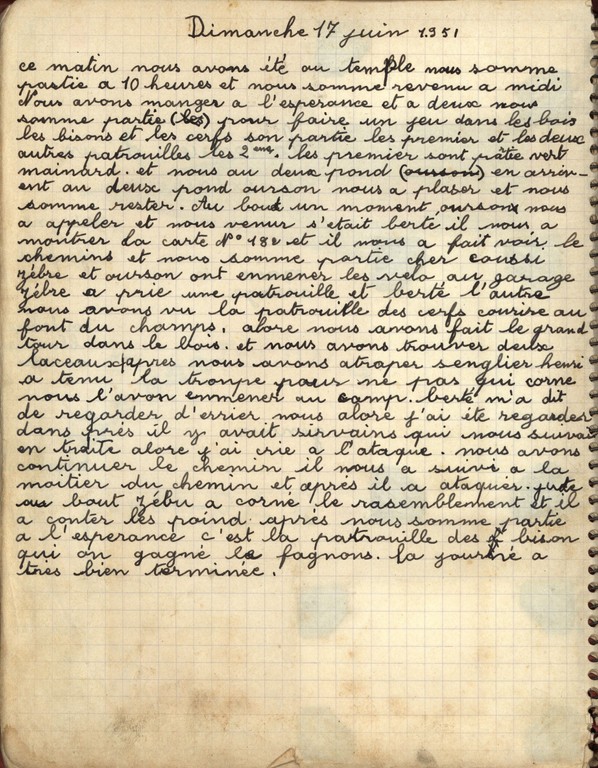 Dimanche 17 juin 1951
ce matin nous avons été au temple nous somme
partie a 10 heures et nous somme revenu a midi
Nous avons manger a l'esperance et a deux nous
somme partie (les) pour faire un jeu dans les bois
les bisons et les cerfs son partie les premier et les deux
autres patrouilles les 2 eme. les premier sont patie vert
mainard. et nous au deux pond (ourson) en arriv-
ent au deux pond ourson nous a plaser et nous
somme rester. Au bout un moment ourson nous
a appeler et nous venur s'etait berté il nous a
montrer la carte N° 182 et il nous a fait voir le
chemins et nous somme partie cher coussi
zèbre et ourson ont enmener les velo au garage
zèbre a prie une patrouille et berté l'autre
nous avons vu la patrouille des cerfs courire au
font du champs. alore nous avons fait le grand
tour dans le bois. et nous avons trouver deux
laceaux apres nous avons atraper senglier henri
a tenu la trompe paur ne pas qui corne
nous l'avon enmener au camp. berté m'a dit
de regarder d'errier nous alore j'ai éte regarder
dans prés il y avait sirvains qui nous suivai
en traite alore j'ai crie a l'ataque. nous avons
continuer le chemin il nous a suivi a la
moitier du chemin et après il a ataquer. juste
au bout zébu a corné le rasemblement et il
a conter les poind après nous somme partie
a l'esperance c'est la patrouille des bison
qui on gagné le fagnons. la journé a
très bien terminée.